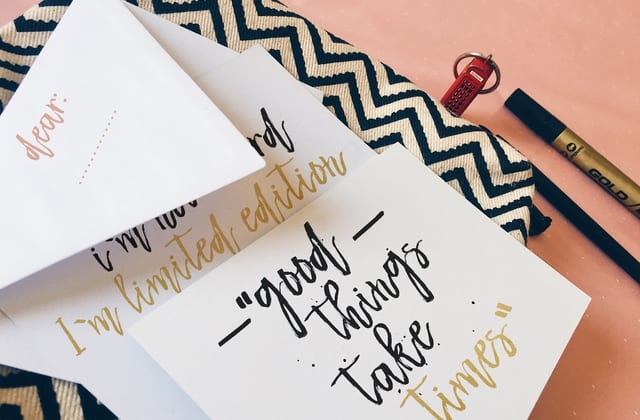 dear:
i`m
I`m limited edition
"good
things
take
times"
GOLD